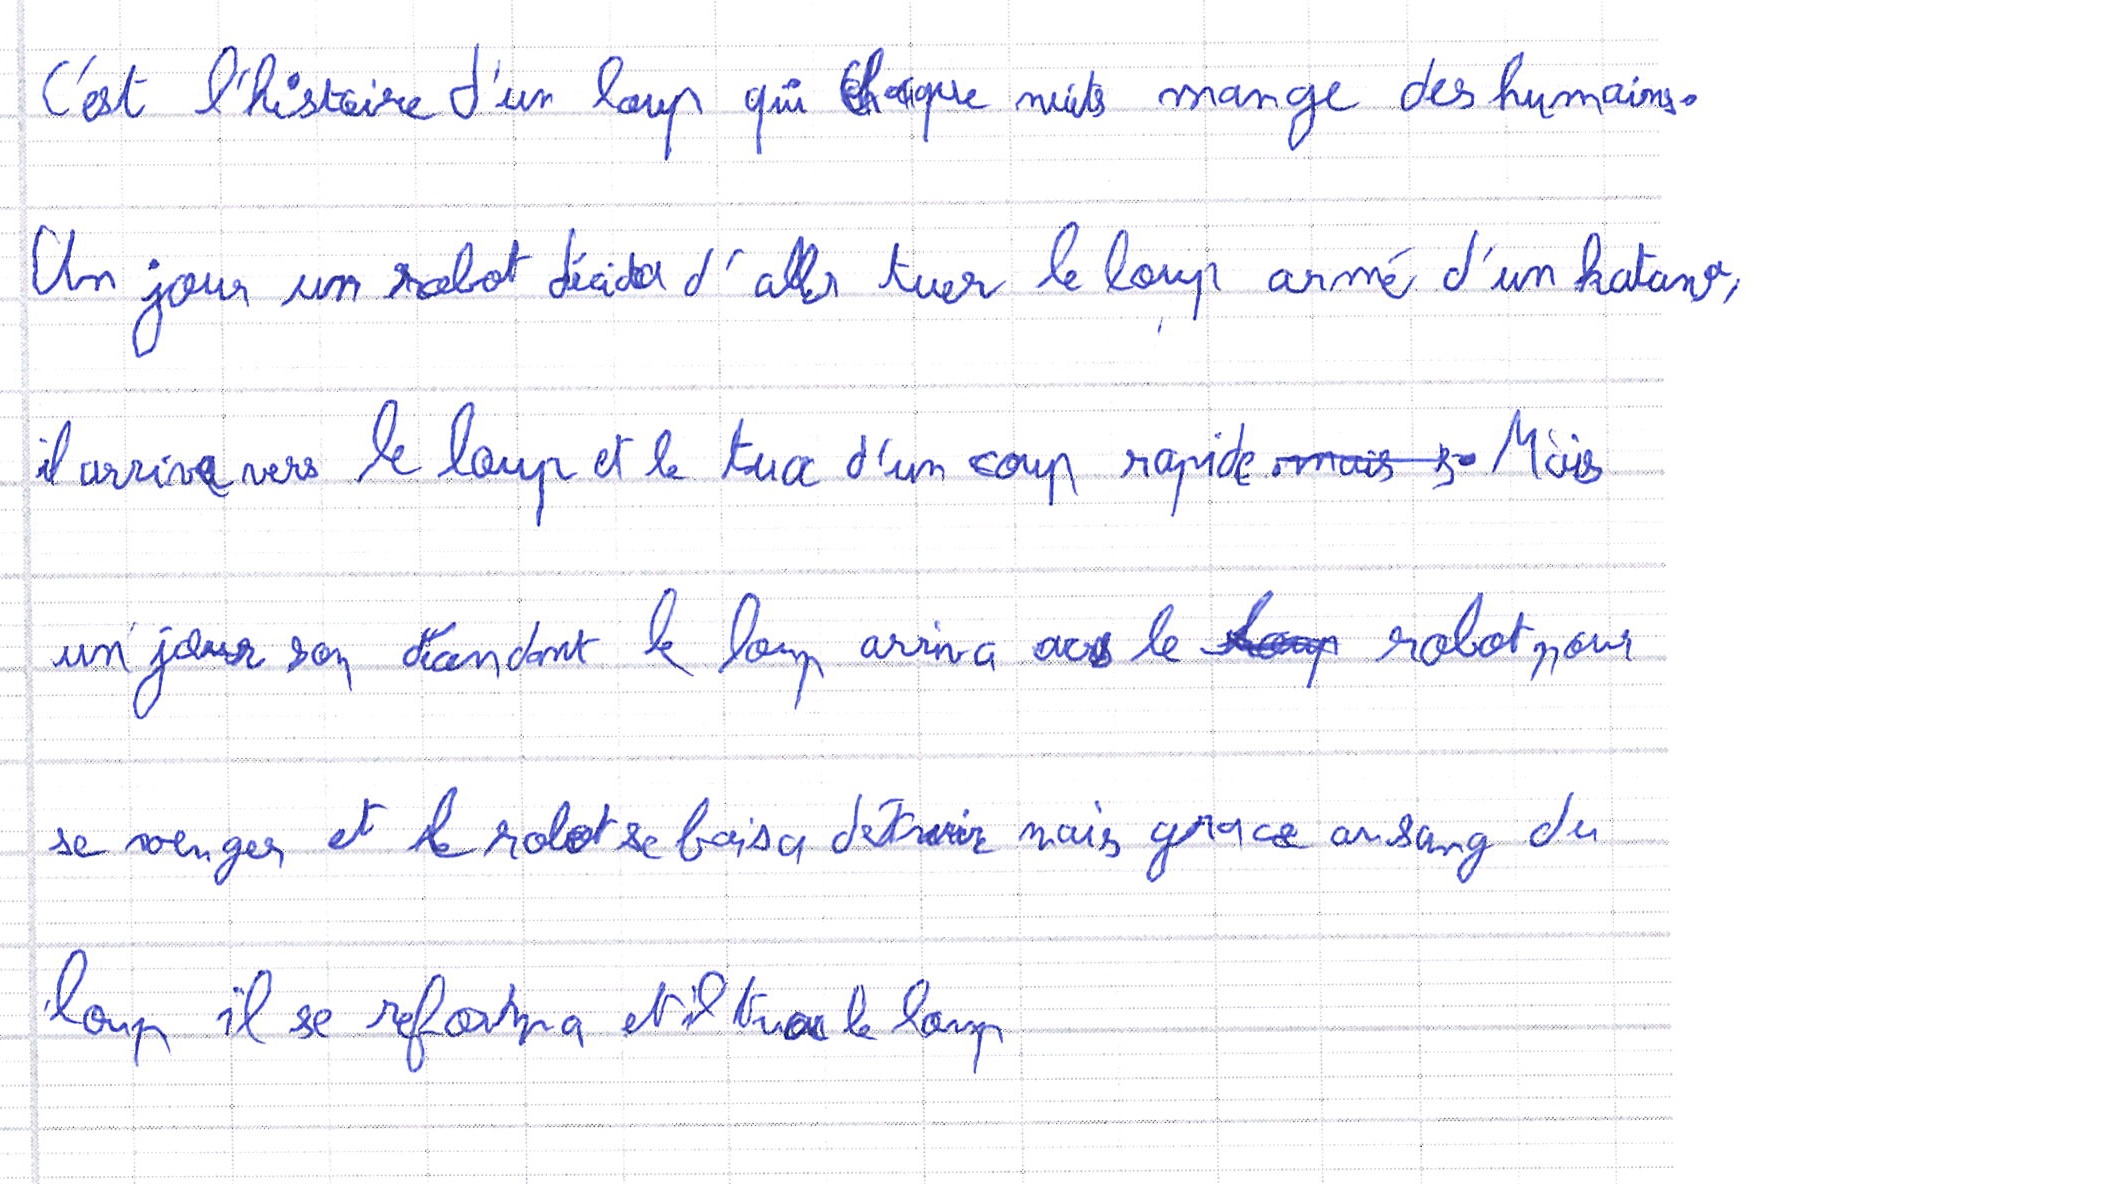 C'est l'histoire d'un loup qui chaque nuits mange des humains.
Un jour un robot décida d'aller tuer le loup armé d'un katana,
il arriva vers le loup et le tua d'un coup rapide. Mais
un jour son dandant le loup arriva vers le robot pour
se venger et le robot se faisa détruir mais grace au sang du
loup il se reforma et il tua le loup